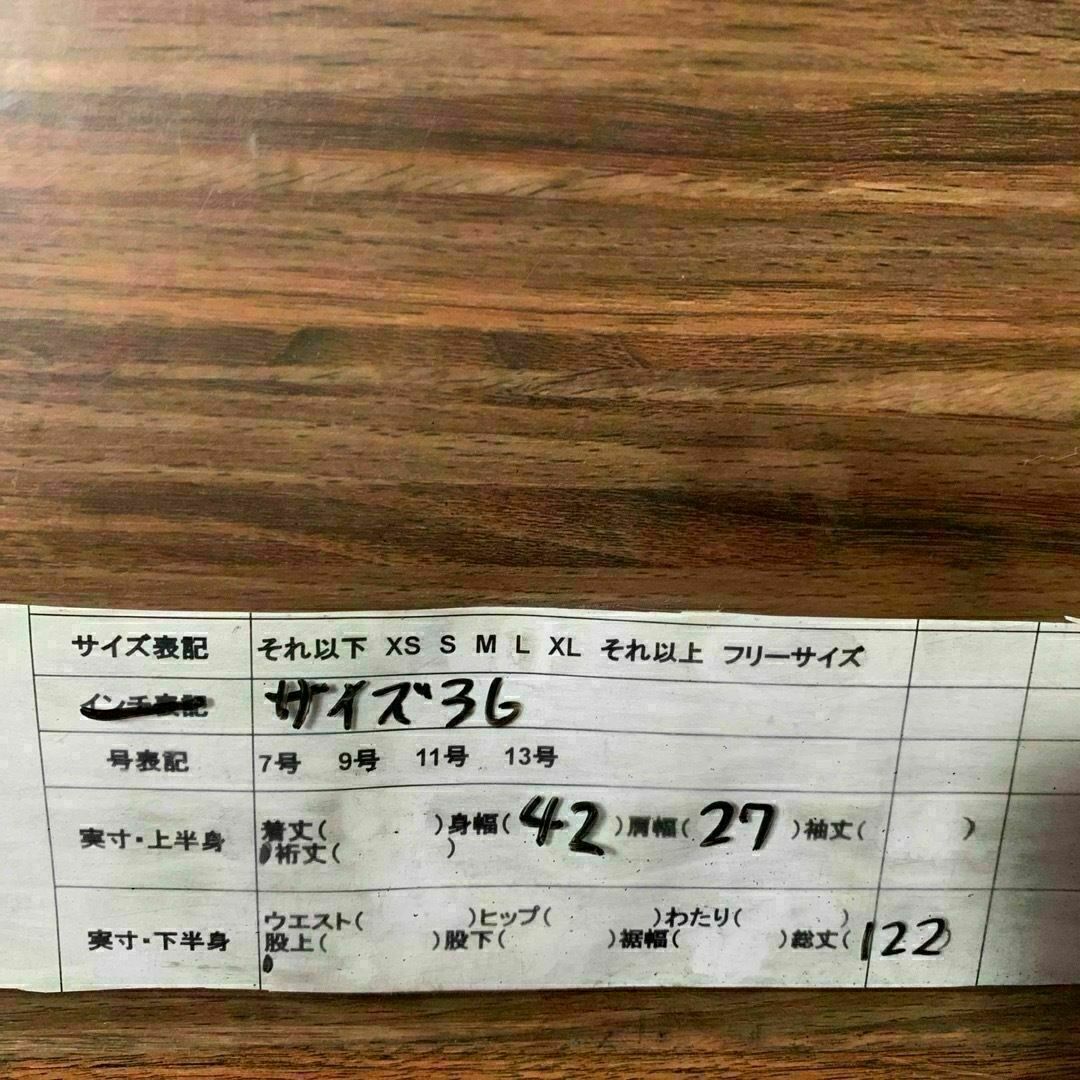 サイズ表記 それ以下 XS S M L XL それ以上 フリーサイズ
インチ表記 サイズ36
号表記 7号 9号 11号 13号
実寸・上半身 着丈( )身幅(42)肩幅(27)袖丈( )
裄丈( )
実寸・下半身 ウエスト( )ヒップ( )わたり( )
股上( )股下( )裾幅( )総丈(122)